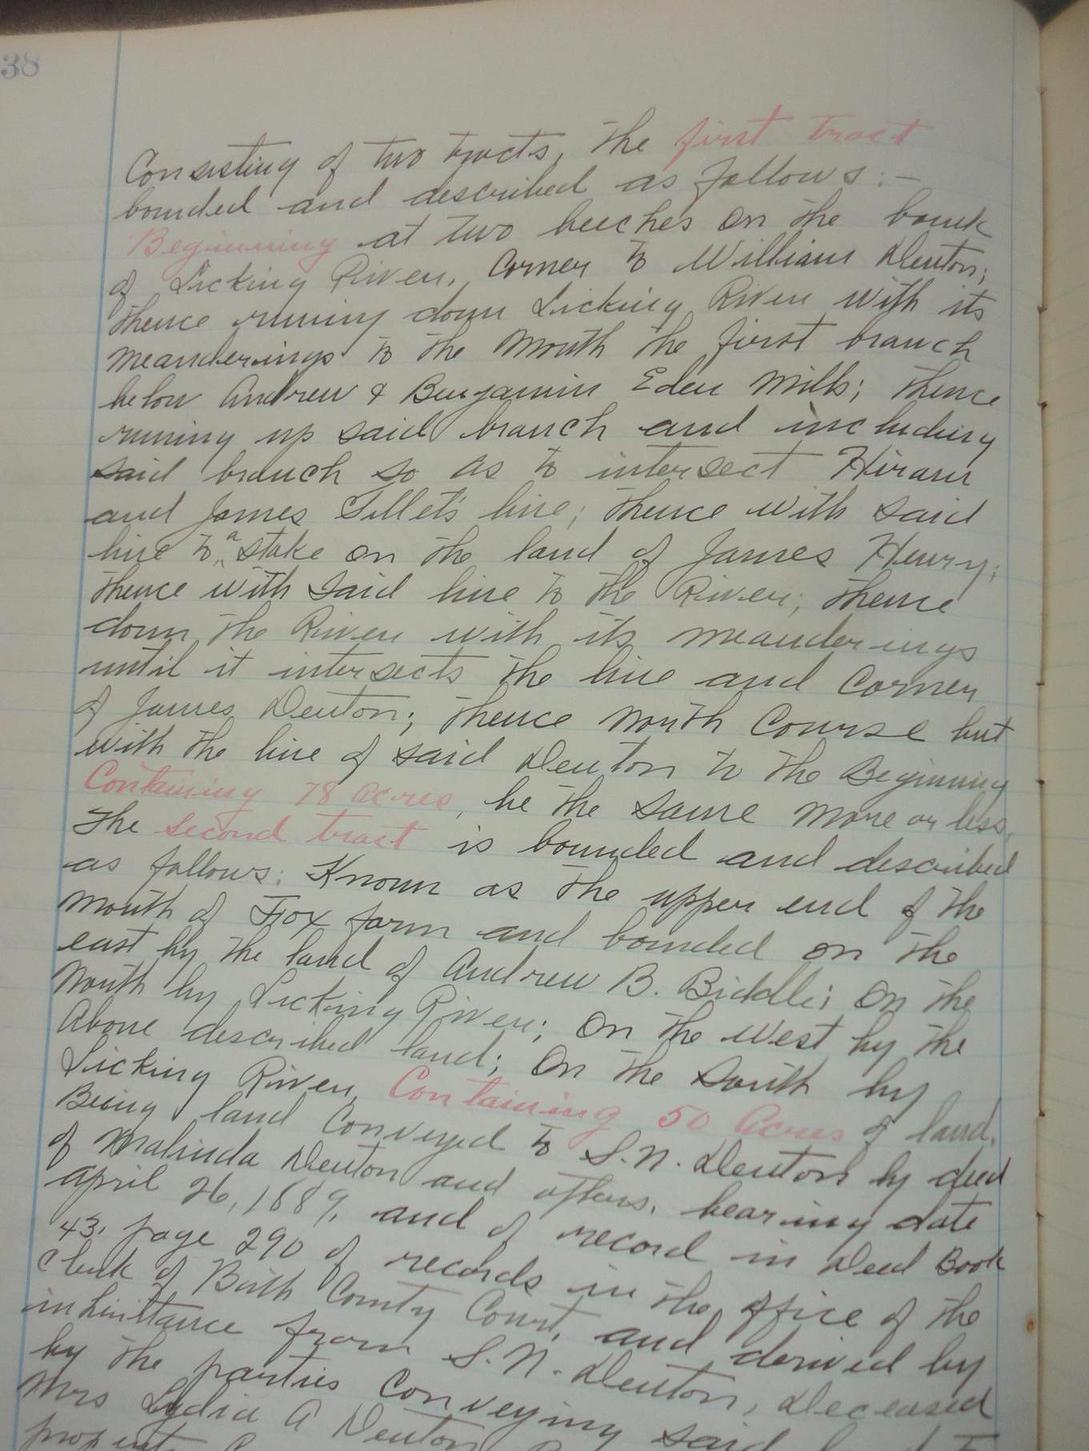 38
Consisting of two tracts, the first tract
bounded and described as follows:-
Beginning at two beeches on the bank
of Licking River, Corner to William Denton;
thence runing down Licking River with its
meanderings to the mouth the first branch
below Andrew & Benjamin Eden Mills; thence
runing up said branch and including
said branch so as to intersect Hiram
and James Tillet's line; thence with said
line to a stake on the land of James Henry;
thence with said line to the River; thence
down the River with its meanderings
until it intersects the line and Corner
of James Denton; thence North Course but
with the line of said Denton to the Beginning
Containing 78 acres, be the same more or less.
The second tract is bounded and described
as follows: Known as the upper end of the
mouth of Fox farm and bounded on the
east by the land of Andrew B. Biddle; On the
North by Licking River; On the West by the
Above described land; On the South by
Licking River, Containing 50 Acres of land.
Being land Conveyed to S.N. Denton by deed
of Malinda Denton and others, bearing date
April 26, 1889, and of record in Deed Book
43, page 290 of records in the office of the
Clerk of Bath County Court, and derived by
inheritance from S.N. Denton, Deceased
by the parties Conveying said
Mrs Lydia A Denton